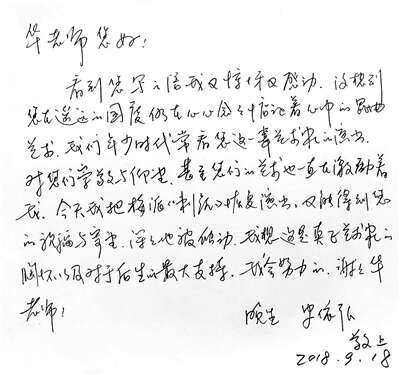 华老师您好：
看到您写之信我又惊讶又感动，没想到
您在遥远的国度仍在心心念念惦记着心中的
艺术。我们年少时代常看您这一辈艺术家的演出，
对您们崇敬与仰望，甚至您们的艺术也一直在激励着
我。今天我把梅派《》恢复演出，又能得到您
的祝福与，深深地被感动，我想这是真正艺术家的
胸怀以及对于后生的最大支持，我会努力的，谢谢华
老师！
晚生 史依弘
敬上
2018.9.18